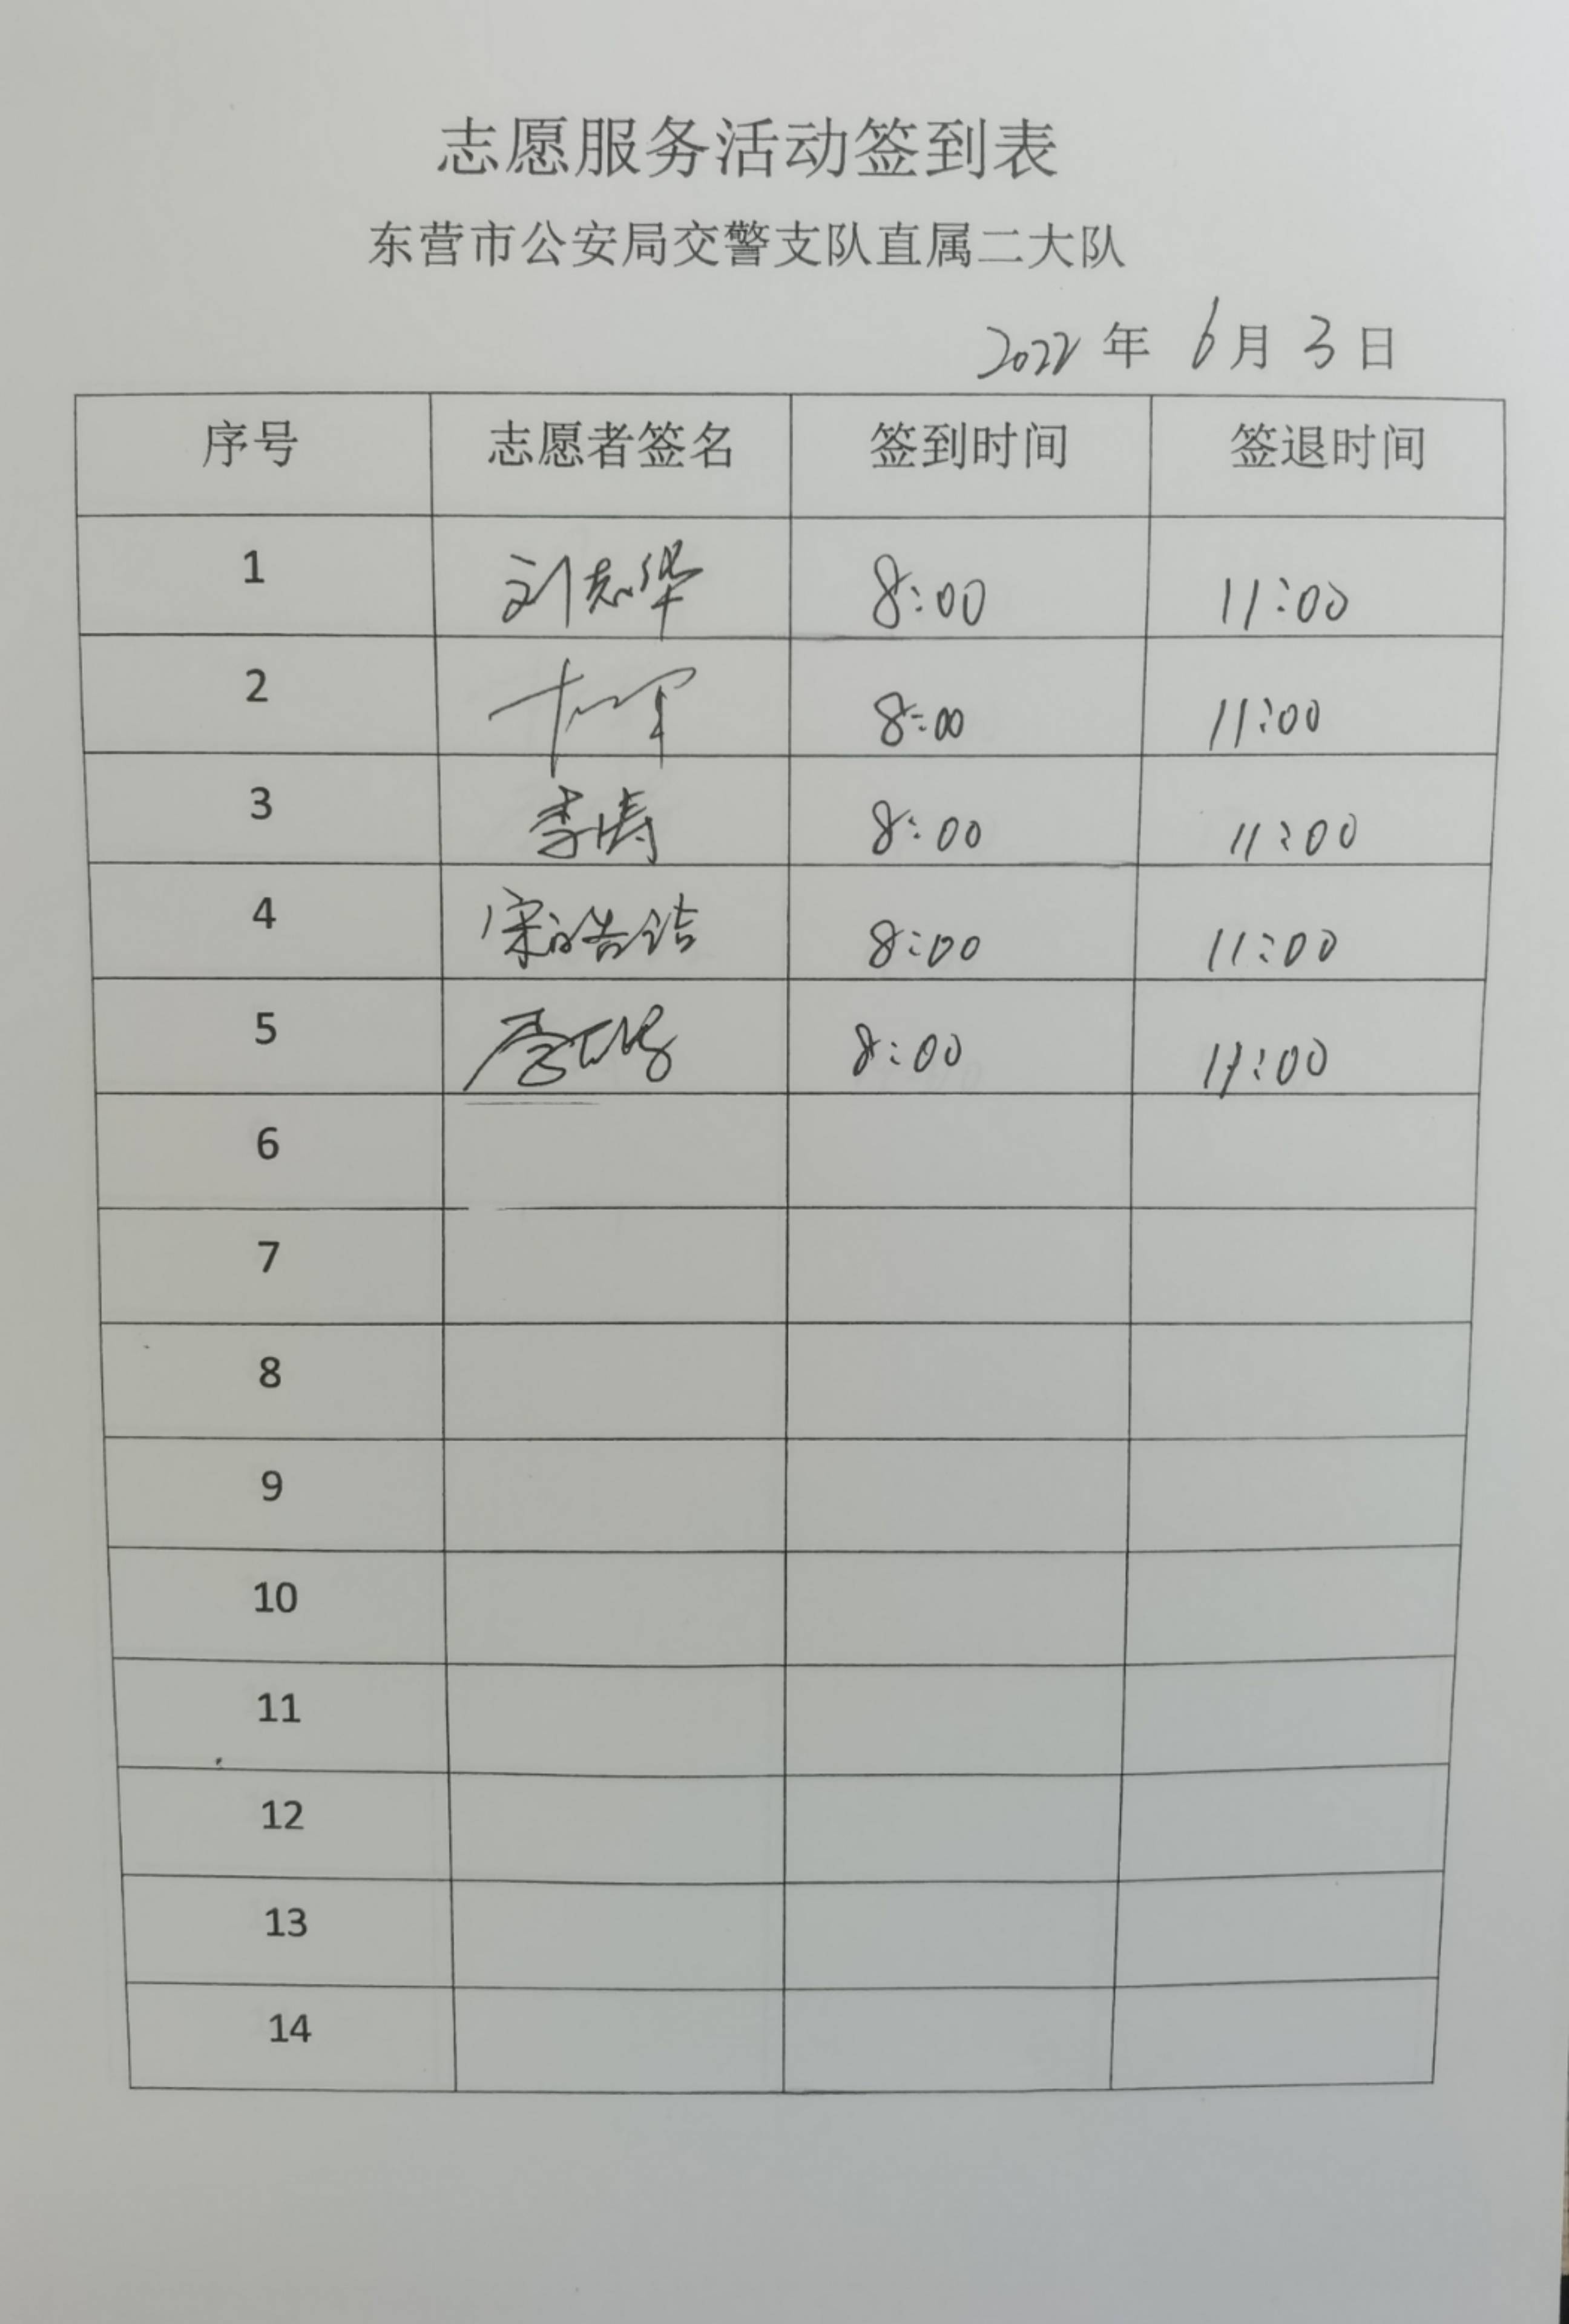 志愿服务活动签到表
东营市公安局交警支队直属二大队
2022年6月3日
序号 志愿者签名 签到时间 签退时间
1 刘志华 8:00 11:00
2 8:00 11:00
3 李涛 8:00 11:00
4 宋皓洁 8:00 11:00
5 8:00 11:00
6
7
8
9
10
11
12
13
14